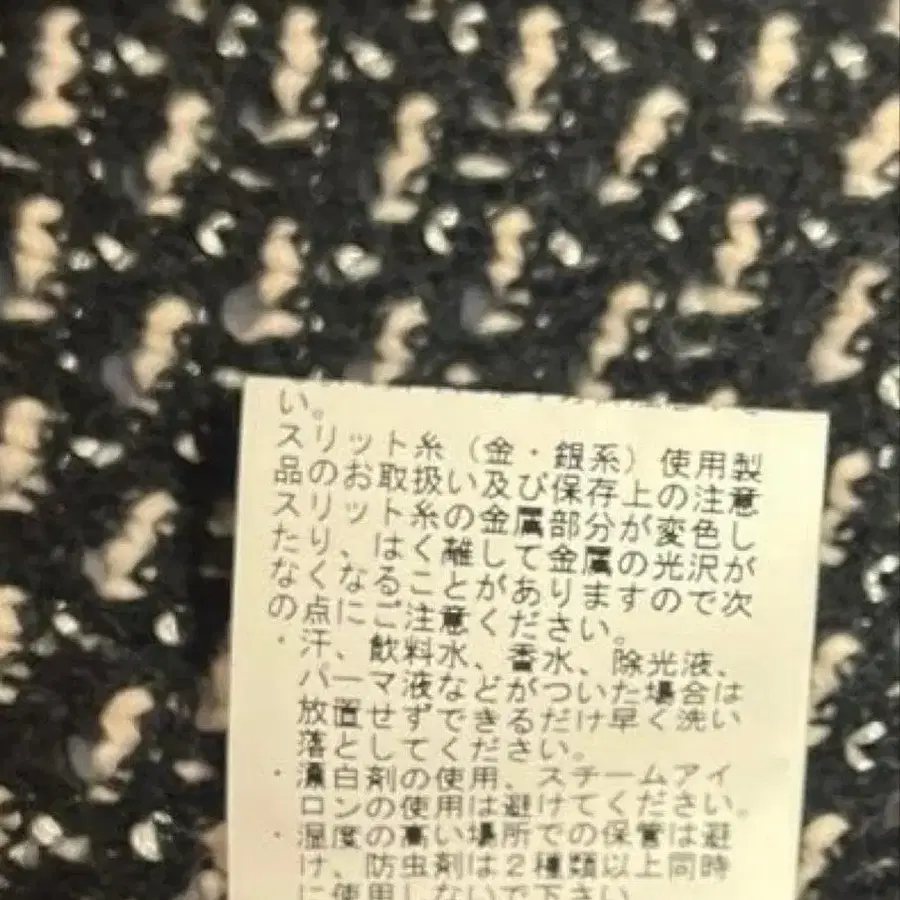 い。
スリット糸（金・銀系）使用製
品のお取扱い及び保存上の注意
スリット糸の金属部分が変色し
たり、はく離して金属の光沢が
なくなることがありますので次
の点にご注意ください。
・汗、飲料水、香水、除光液、
パーマ液などがついた場合は
放置せずできるだけ早く洗い
落としてください。
・漂白剤の使用、スチームアイ
ロンの使用は避けてください。
・湿度の高い場所での保管は避
け、防虫剤は2種類以上同時
に使用しないで下さい